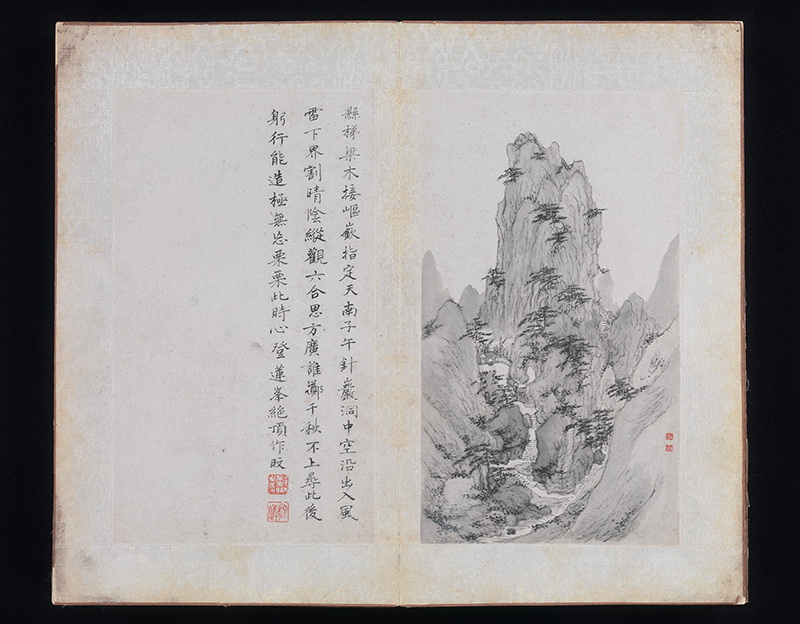 縣梯梁木接嶇嶔指定天南子午針巖洞中空沿出入風
雷下界割晴陰縱觀六合思方廣誰千秋不上尋此後
躬行能造極無忘栗栗此時心登蓮峯絕頂作旼